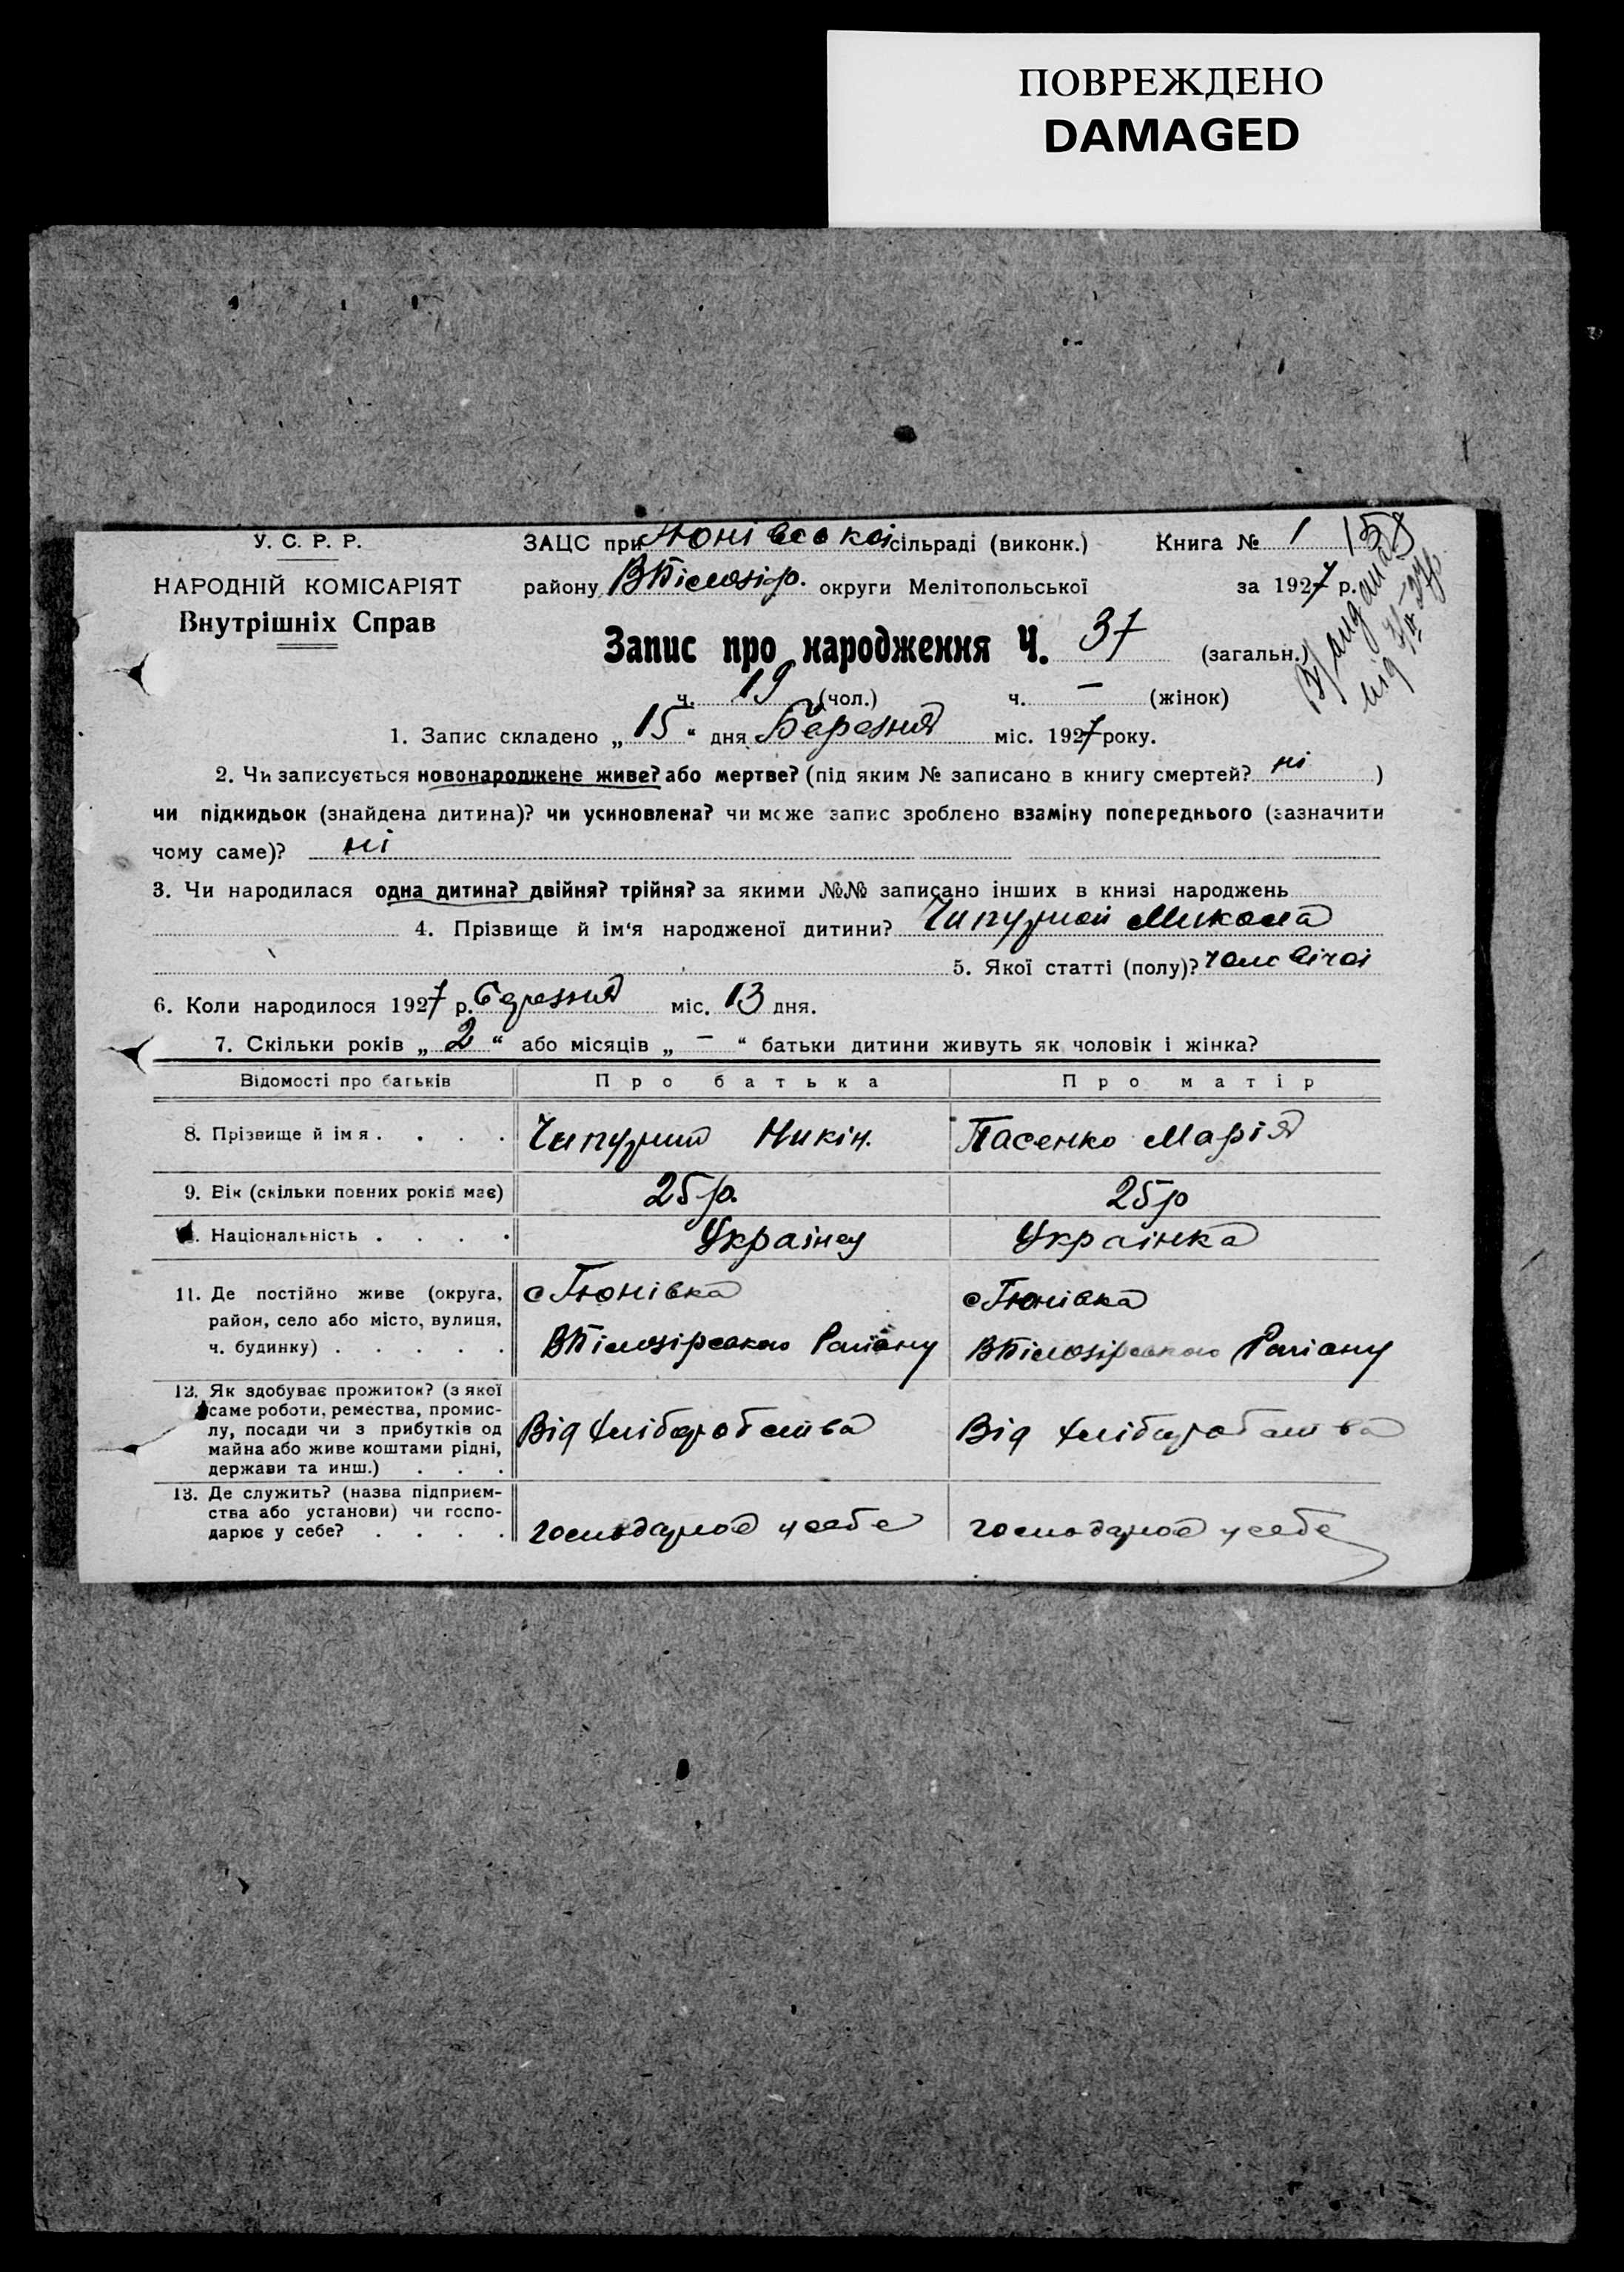 ПОВРЕЖДЕНО
DAMAGED
У. С. Р. Р.
НАРОДНІЙ КОМІСАРІЯТ
Внутрішніх Справ
ЗАЦС при Тюнівської сільраді (виконк.)
Книга № 1 158
району ВБілозір. округи Мелітопольської
за 1927 р.
Запис про народження Ч. 37 (загальн.)
ч. 19 (чол.) ч. — (жінок)
1. Запис складено „15“ дня Березня міс. 1927 року.
2. Чи записується новонароджене живе? або мертве? (під яким № записано в книгу смертей? ні )
чи підкидьок (знайдена дитина)? чи усиновлена? чи може запис зроблено взаміну попереднього (зазначити
чому саме)? ні
3. Чи народилася одна дитина? двійня? трійня? за якими №№ записано інших в книзі народжень
4. Прізвище й ім'я народженої дитини? Чипурной Микола
5. Якої статті (полу)? чоловічої
6. Коли народилося 1927 р. березня міс. 13 дня.
7. Скільки років „2“ або місяців „—“ батьки дитини живуть як чоловік і жінка?
Відомості про батьків Про батька Про матір
8. Прізвище й імя . . . . Никін. Пасенко Марія
9. Вік (скільки повних років має) 25 р. 25 р
. Національність . . . . Українец Українка
11. Де постійно живе (округа, с Тюнівка с Тюнівка
район, село або місто, вулиця,
ч. будинку) . . . . . ВБілозірского Району ВБілозірского Району
12. Як здобуває прожиток? (з якої
саме роботи, ремества, промис-
лу, посади чи з прибутків од Від хліборобства Від хліборобства
майна або живе коштами рідні,
держави та инш.) . . .
13. Де служить? (назва підприєм-
ства або установи) чи госпо-
дарює у себе? . . . . господарює у себе господарює у себе